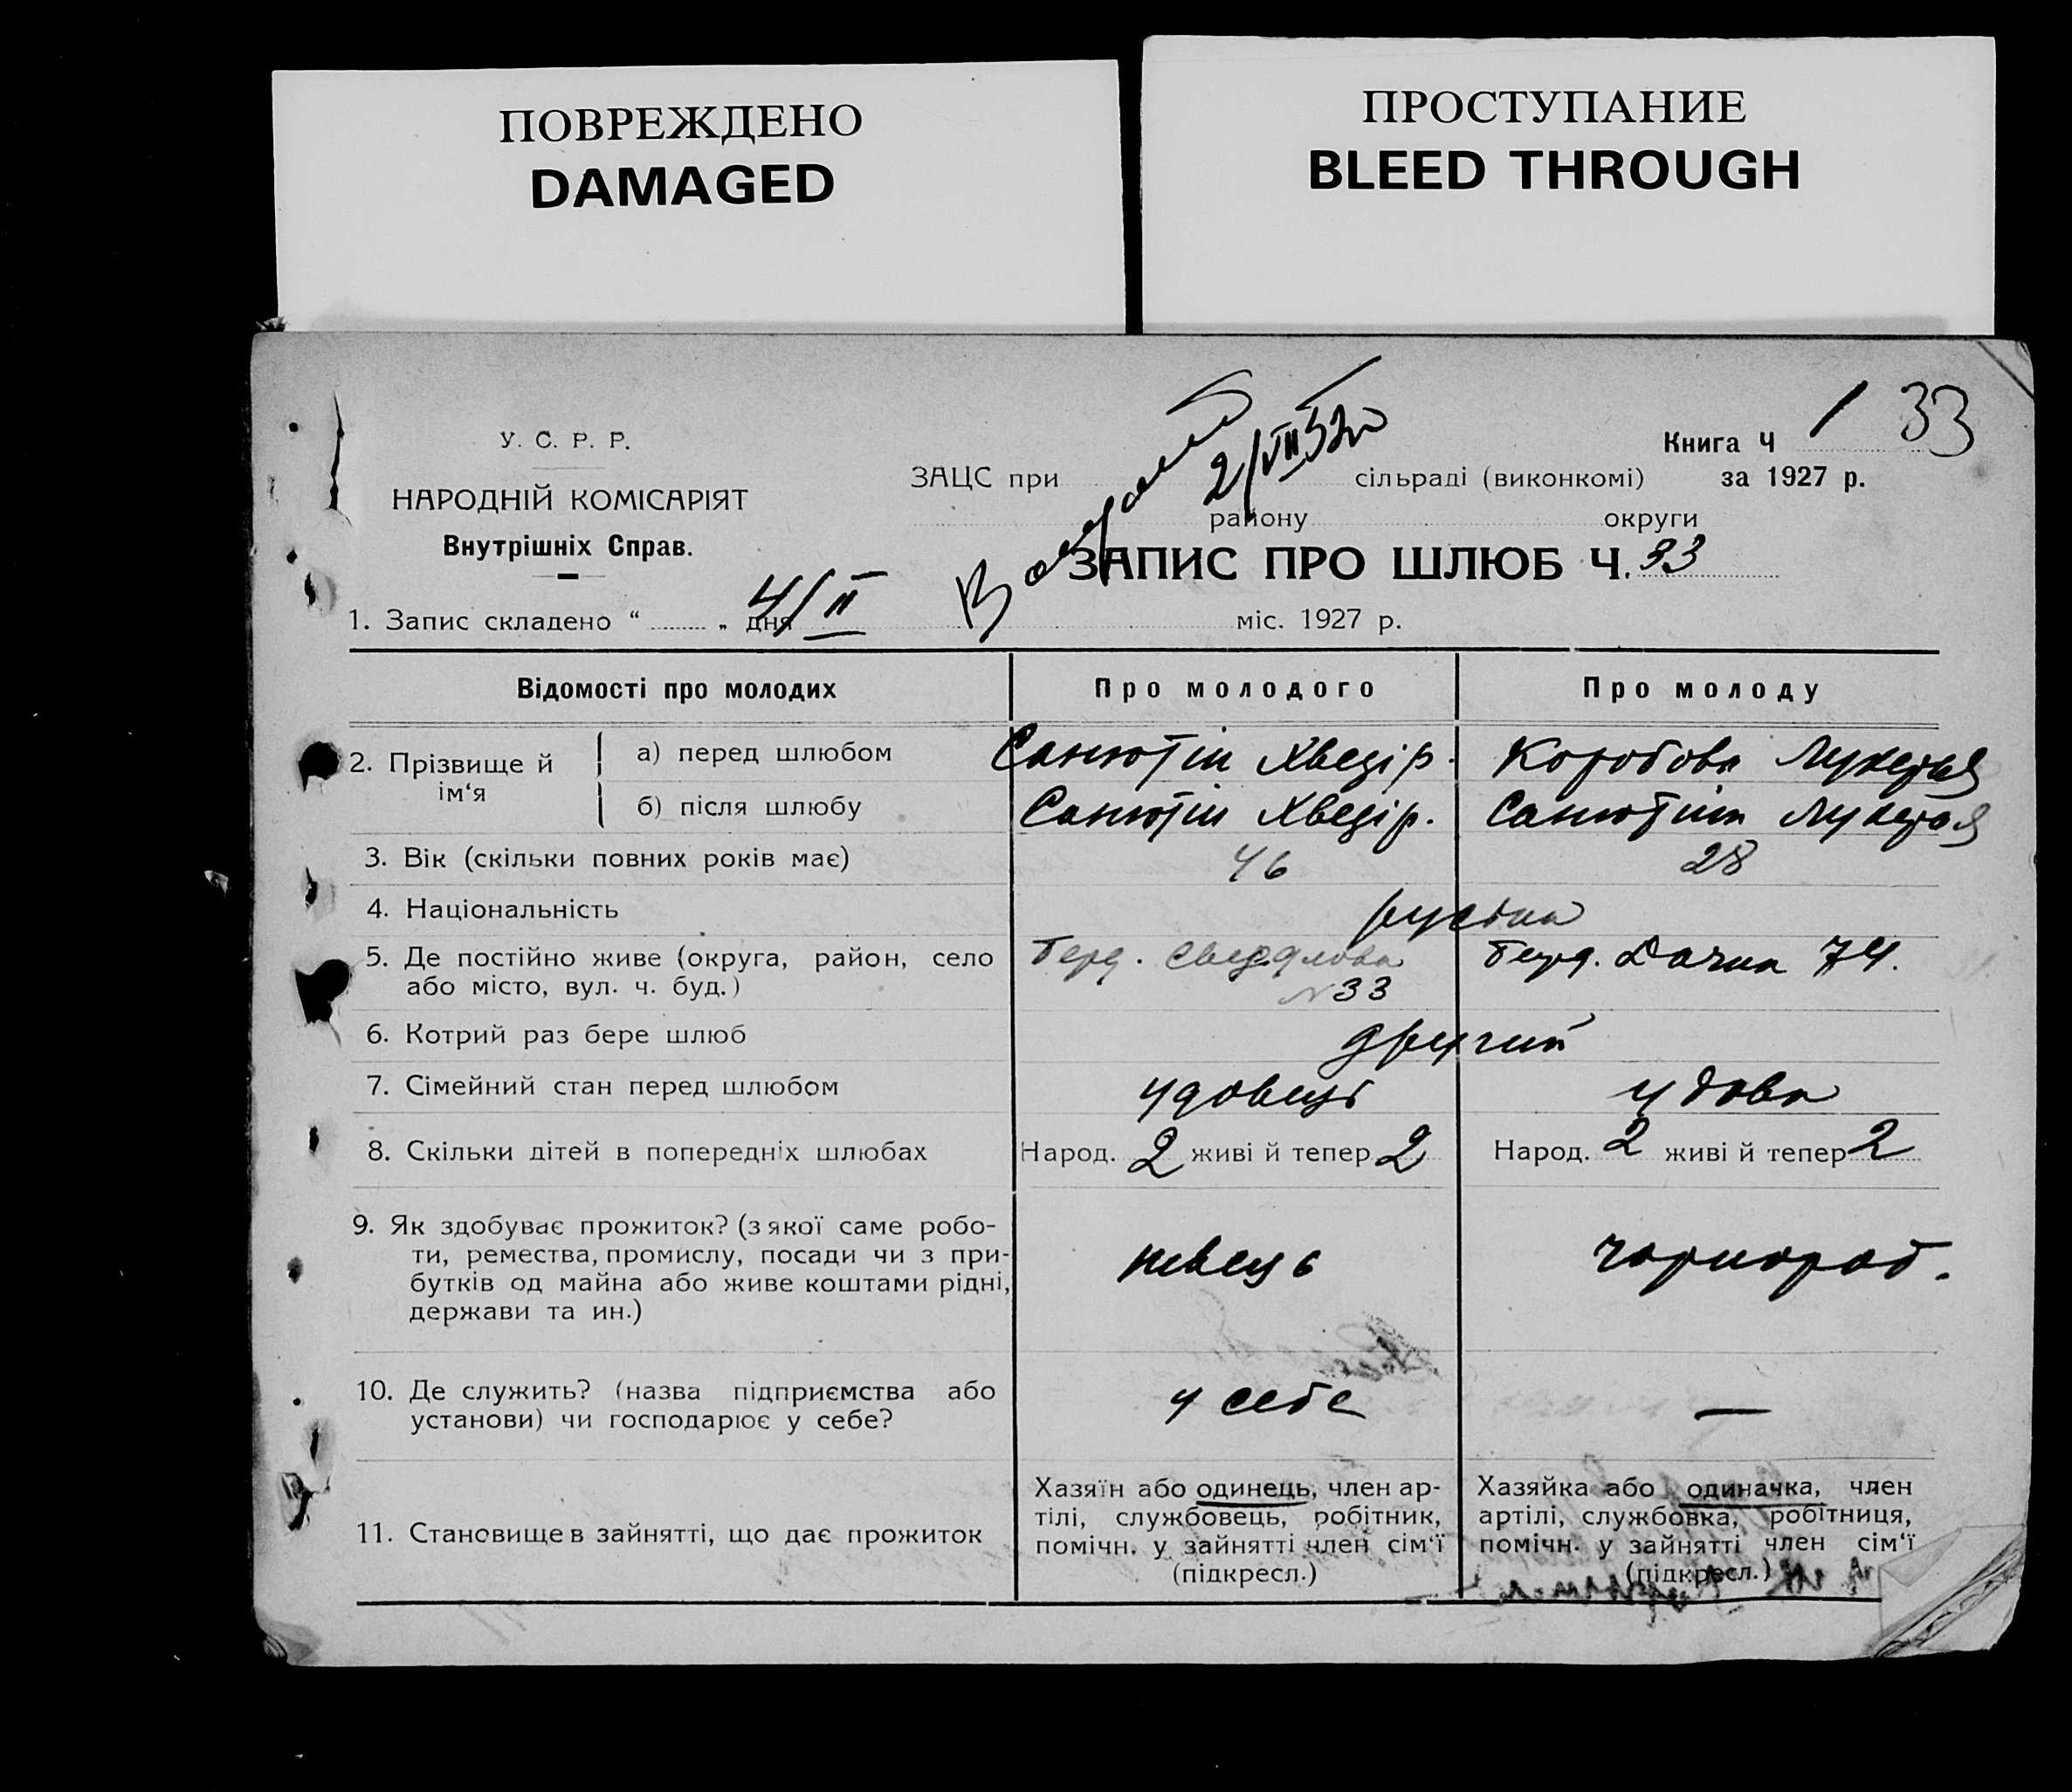 ПОВРЕЖДЕНО
DAMAGED
ПРОСТУПАНИЕ
BLEED THROUGH
У. С. Р. Р.
НАРОДНІЙ КОМІСАРІЯТ
Внутрішніх Справ.
Книга Ч 1 33
ЗАЦС при сільраді (виконкомі) за 1927 р.
2/VII 32
району округи
ЗАПИС ПРО ШЛЮБ Ч. 33
1. Запис складено “ „ дня 4/II міс. 1927 р.
Відомості про молодих Про молодого Про молоду
2. Прізвище й ім‘я а) перед шлюбом Санютін Хведір. Коробова Лукерья
б) після шлюбу Санютін Хведір. Санютіна Лукерья
3. Вік (скільки повних років має) 46 28
4. Національність
5. Де постійно живе (округа, район, село Берд. Свердлова Берд. Дачна 74.
або місто, вул. ч. буд.) N 33
6. Котрий раз бере шлюб другий
7. Сімейний стан перед шлюбом удовець удова
8. Скільки дітей в попередніх шлюбах Народ. 2 живі й тепер 2 Народ. 2 живі й тепер 2
9. Як здобуває прожиток? (з якої саме робо-
ти, ремества, промислу, посади чи з при- швець чорнороб.
бутків од майна або живе коштами рідні,
держави та ин.)
10. Де служить? (назва підприємства або у себе —
установи) чи господарює у себе?
11. Становище в зайнятті, що дає прожиток
Хазяїн або одинець, член ар-
тілі, службовець, робітник,
помічн. у зайнятті член сім‘ї
(підкресл.)
Хазяйка або одиначка, член
артілі, службовка, робітниця,
помічн. у зайнятті член сім‘ї
(підкресл.)